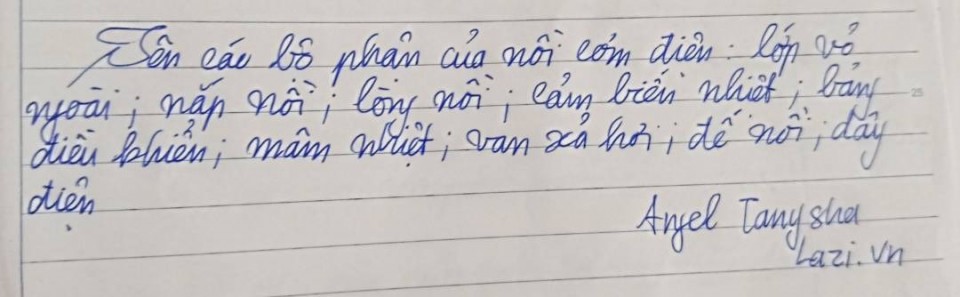 Tên các bộ phận của nồi cơm điện: lớp vỏ
ngoài; nắp nồi; lòng nồi; cảm biến nhiệt; bảng
điều khiển; mâm nhiệt; van xả hơi; đế nồi; dây
điện
Angel Tangsha
Lazi.vn